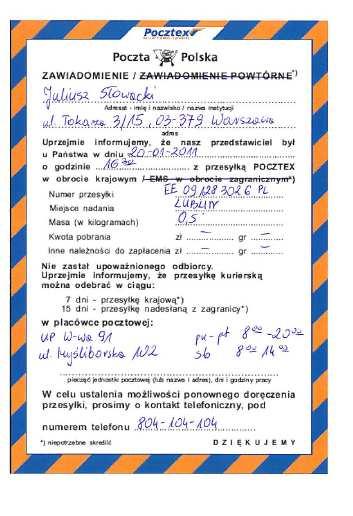 Pocztex
Poczta Polska
ZAWIADOMIENIE / ZAWIADOMIENIE POWTÓRNE*)
Juliusz Słowacki
Adresat - imię i nazwisko / nazwa instytucji
ul. Tokarza 3/15, 03-379 Warszawa
adres
Uprzejmie informujemy, że nasz przedstawiciel był
u Państwa w dniu 20-01-2011
o godzinie 16 30 z przesyłką POCZTEX
w obrocie krajowym / EMS w obrocie zagranicznym*)
Numer przesyłki EE 09128 3026 PL
Miejsce nadania LUBLIN
Masa (w kilogramach) 0,5
Kwota pobrania zł – gr –
Inne należności do zapłacenia zł – gr –
Nie zastał upoważnionego odbiorcy.
Uprzejmie informujemy, że przesyłkę kurierską
można odebrać w ciągu:
7 dni - przesyłkę krajową*)
15 dni - przesyłkę nadesłaną z zagranicy*)
w placówce pocztowej:
UP W-wa 91 pn-pt 8 00 -20 00
ul. Myśliborska 102 sb 8 00 14 00
pieczęć jednostki pocztowej (lub nazwa i adres), dni i godziny pracy
W celu ustalenia możliwości ponownego doręczenia
przesyłki, prosimy o kontakt telefoniczny, pod
numerem telefonu 804-104-104
*) niepotrzebne skreślić DZIĘKUJEMY